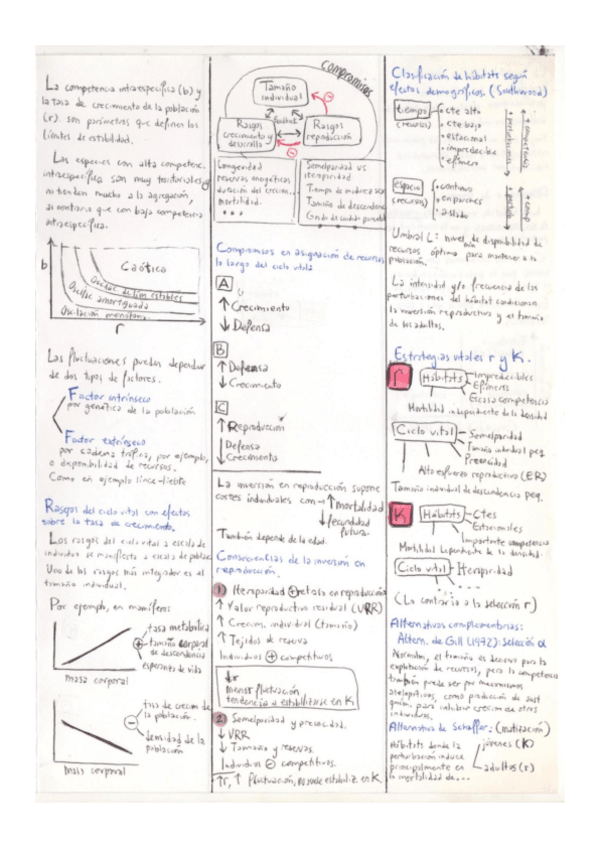 La competencia intraespecífica (b) y
la tasa de crecimiento de la población
(r) son parámetros que definen los
límites de estabilidad.
Las especies con alta competenc.
intraespecífica son muy territoriales y
no tienden mucho a la agregación,
al contrario que con baja competencia
intraespecífica.
b
Caótica
Oscilac. de lím. estables
Oscilac. amortiguada
Oscilación monótona
r
Las fluctuaciones pueden depender
de dos tipos de factores.
Factor intrínseco
por genética de la población
Factor extrínseco
por cadena trófica, por ejemplo,
o disponibilidad de recursos.
Como en ejemplo lince-liebre
Rasgos del ciclo vital con efectos
sobre la tasa de crecimiento.
Los rasgos del ciclo vital a escala de
individuo se manifiesta a escala de poblac
Uno de los rasgos más integrador es el
tamaño individual.
Por ejemplo, en mamíferos
tasa metabólica
+ tamaño corporal
de descendencia
esperanza de vida
masa corporal
tasa de crecim. de
la población.
- densidad de la
población
Masa corporal
compromisos
Tamaño
individual
Rasgos
crecimiento y
desarrollo
Rasgos
reproducción
Longevidad
reservas energéticas
duración del crecim.
mortalidad.
...
Semelparidad vs
iteroparidad
Tiempo de madurez sex
Tamaño de descendenc
Grado de cuidado parental
Compromisos en asignación de recursos
lo largo del ciclo vital
A
↑ Crecimiento
↓ Defensa
B
↑ Defensa
↓ Crecimiento
C
↑ Reproducción
↓ Defensa
Crecimiento
La inversión en reproducción supone
costes individuales con → ↑ mortalidad
↓ fecundidad
futura.
También depende de la edad.
Consecuencias de la inversión en
reproducción.
1 Iteroparidad + retraso en reproducción
↑ Valor reproductivo residual (VRR)
↑ Crecim. individual (tamaño)
↑ Tejidos de reserva
Individuos + competitivos
↓r
menor fluctuación
tendencia a estabilizarse en K
2 Semelparidad y precocidad.
↓ VRR
↓ Tamaño y reservas.
Individuos - competitivos.
↑r, ↑ fluctuación, no suele estabiliz. en K.
Clasificación de hábitats según
efectos demográficos. (Southwood)
tiempo
(recursos)
• cte alto
• cte bajo
• estacional
• impredecible
• efímero
espacio
(recursos)
• continuo
• en parches
• aislado
Umbral L: nivel mín de disponibilidad de
recursos óptimo para mantener a la
población.
La intensidad y/o frecuencia de las
perturbaciones del hábitat condicionan
la inversión reproductiva y el tamaño
de los adultos.
Estrategias vitales r y K.
r
Hábitats
Impredecibles
Efímeros
Escasa competencia
Mortalidad independiente de la densidad
Ciclo vital
Semelparidad
Tamaño individual peq.
Precocidad
Alto esfuerzo reproductivo (ER)
Tamaño individual de descendencia peq.
K
Hábitats
Ctes
Estacionales
Importante competencia
Mortalidad dependiente de la densidad.
Ciclo vital
Iteroparidad
...
(Lo contrario a la selección r)
Alternativas complementarias:
Altern. de Gill (1972): selección α
Normalm. el tamaño es decisivo para la
explotación de recursos, pero la competencia
también puede ser por mecanismos
alelopáticos, como producción de sust
quím. para inhibir crecim. de otros
individuos.
Alternativa de Schaffer: (matización)
Hábitats donde la
perturbación induce
principalmente en
la mortalidad de...
jóvenes (K)
adultos (r)